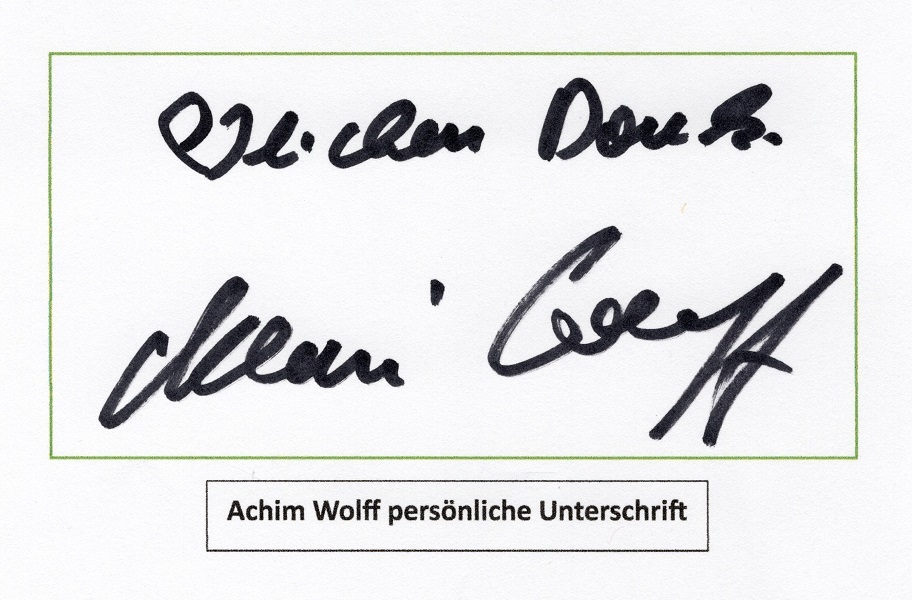 ♡lichen Dank.
Achim Wolff
Achim Wolff persönliche Unterschrift